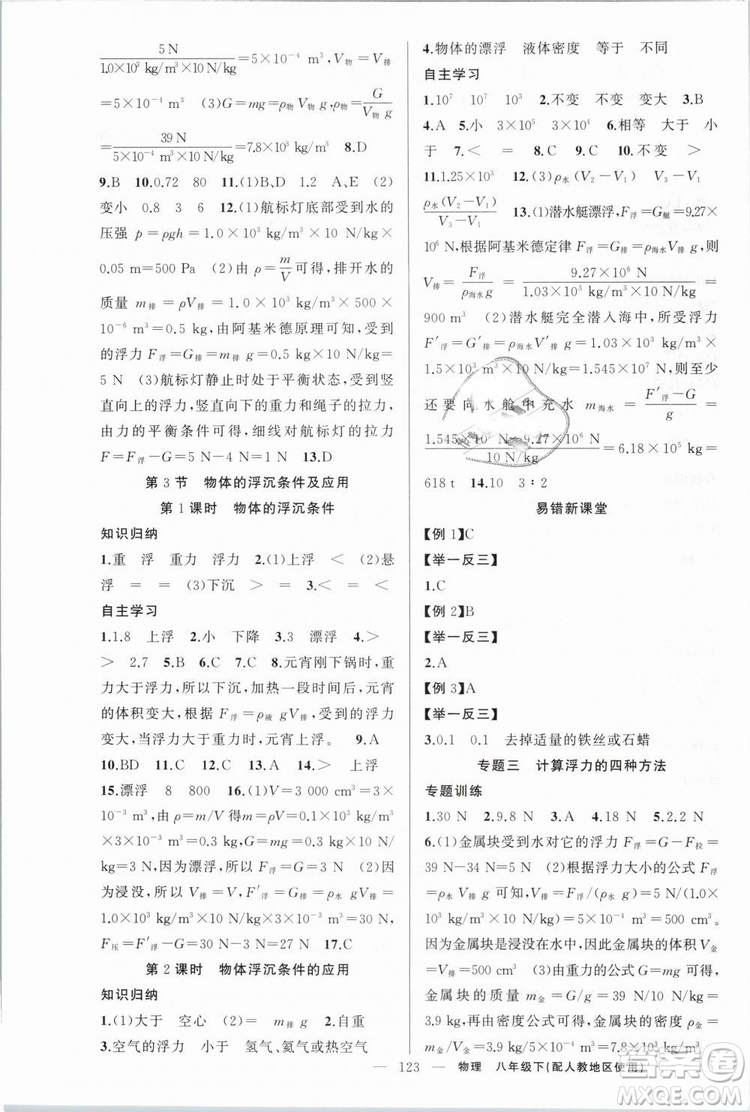 5 N/(1.0×10³×10) =5×10⁻⁴ m³ V物=V排
=5×10⁻⁴ m³ (3)G=mg=ρ物V物g,ρ物=G/(V物g)
=39 N/(5×10⁻⁴ m³×10 N/kg)=7.8×10³ kg/m³ 8.D
9.B 10.0.72 80 11.(1)B、D 1.2 A、E (2)
变小 0.8 3 6 12.(1)航标灯底部受到水的
压强 p=ρgh=1.0×10³ kg/m³×10 N/kg×
0.05 m=500 Pa (2)由ρ=m/V可得,排开水的
质量 m排=ρV排=1.0×10³ kg/m³×500×
10⁻⁶ m³=0.5 kg,由阿基米德原理可知,受到的
的浮力 F浮=G排=m排g=0.5 kg×10 N/kg=
5 N (3)航标灯静止时处于平衡状态,受到竖
直向上的浮力,竖直向下的重力和绳子的拉力,
由力的平衡条件可得,细线对航标灯的拉力
F=F浮-G=5 N-4 N=1 N 13.D
第3节 物体的浮沉条件及应用
第1课时 物体的浮沉条件
知识归纳
1.重 浮 重力 浮力 2.(1)上浮 < (2)悬
浮 = = (3)下沉 > > 3.< = <
自主学习
1.1.8 上浮 2.小 下降 3.3 漂浮 4.>
> 2.7 5.B 6.C 7.C 8.元宵刚下锅时,重
力大于浮力,所以下沉,加热一段时间后,元宵
的体积变大,根据 F浮=ρ液gV排,受到的浮力
变大,当浮力大于重力时,元宵上浮。 9.A
10.BD 11.C 12.A 13.A 14.2 上浮
15.漂浮 0.6 2 0.75 16.(1)V=3 000 cm³=
3×10⁻³ m³,由ρ=m/V 得m=ρV=0.1 kg/m³
×3×10⁻³ m³=0.3 kg,G=mg=0.3 kg×10 N/kg
=3 N,因为漂浮,所以F浮=G=3 N (2)因
为浸没,所以 V排=V,F′浮=ρ水gV排=
1.0×10³ kg/m³×10 N/kg×3×10⁻³ m³=30 N,
F压=F′浮-G=30 N-3 N=27 N 17.C
第2课时 物体浮沉条件的应用
知识归纳
1.(1)大于 空心 (2)= m排g 2.自重
3.空气的浮力 小于 氢气、氦气或热空气
4.物体的漂浮 液体密度 等于 不同
自主学习
1.10⁷ 10⁷ 10³ 2.不变 不变 变大 3.B
4.A 5.小 3×10⁵ 3×10⁴ 6.相等 大于 小
于 7.< = 8.C 9.D 10.不变 >
11.1.25×10³ 12.(3)ρ水(V₂-V₁)
ρ水(V₂-V₁)/(V₃-V₁) 13.(1)潜水艇漂浮,F浮=G艇=9.27×
10⁶ N,根据阿基米德定律 F浮=ρ海水gV排,则
V排=F浮/(ρ海水g)=9.27×10⁶ N/(1.03×10³ kg/m³×10 N/kg)=
900 m³ (2)潜水艇完全潜入海中,所受浮力
F′浮=G′排=ρ海水gV′排=1.03×10³ kg/m³×
1.5×10³ m³×10 N/kg=1.545×10⁷ N,则至少
还要向水舱中充水 m海水=(F′浮-G)/g=
(1.545×10⁷ N-9.27×10⁶ N)/(10 N/kg)=6.18×10⁵ kg=
618 t 14.10 3∶2
易错新课堂
【例1】C
【举一反三】
1.C
【例2】B
【举一反三】
2.A
【例3】A
【举一反三】
3.0.1 0.1 去掉适量的铁丝或石蜡
专题三 计算浮力的四种方法
专题训练
1.30 N 2.9.8 N 3.A 4.18 N 5.2.2 N
6.(1)金属块受到水对它的浮力 F浮=G-F拉
=39 N-34 N=5 N (2)根据浮力大小的公式 F浮
=ρ水V排g 可知,金属块排开水的体积 V排=
F浮/(ρ水g)=5 N/(1.0×10³ kg/m³×10 N/kg)=5×10⁻⁴ m³=500 cm³。
因为金属块是浸没在水中,所以金属块的体积 V金
=V排=500 cm³ (3)根据重力的公式 G=mg 可得,
金属块的质量 m金=G/g=39 N/(10 N/kg)=
3.9 kg,再由密度公式可得,该金属块的密度
ρ金=m金/V金=3.9 kg/(5×10⁻⁴ m³)=7.8×10³ kg/m³
— 123 — 物理 八年级下(配人教地区使用)